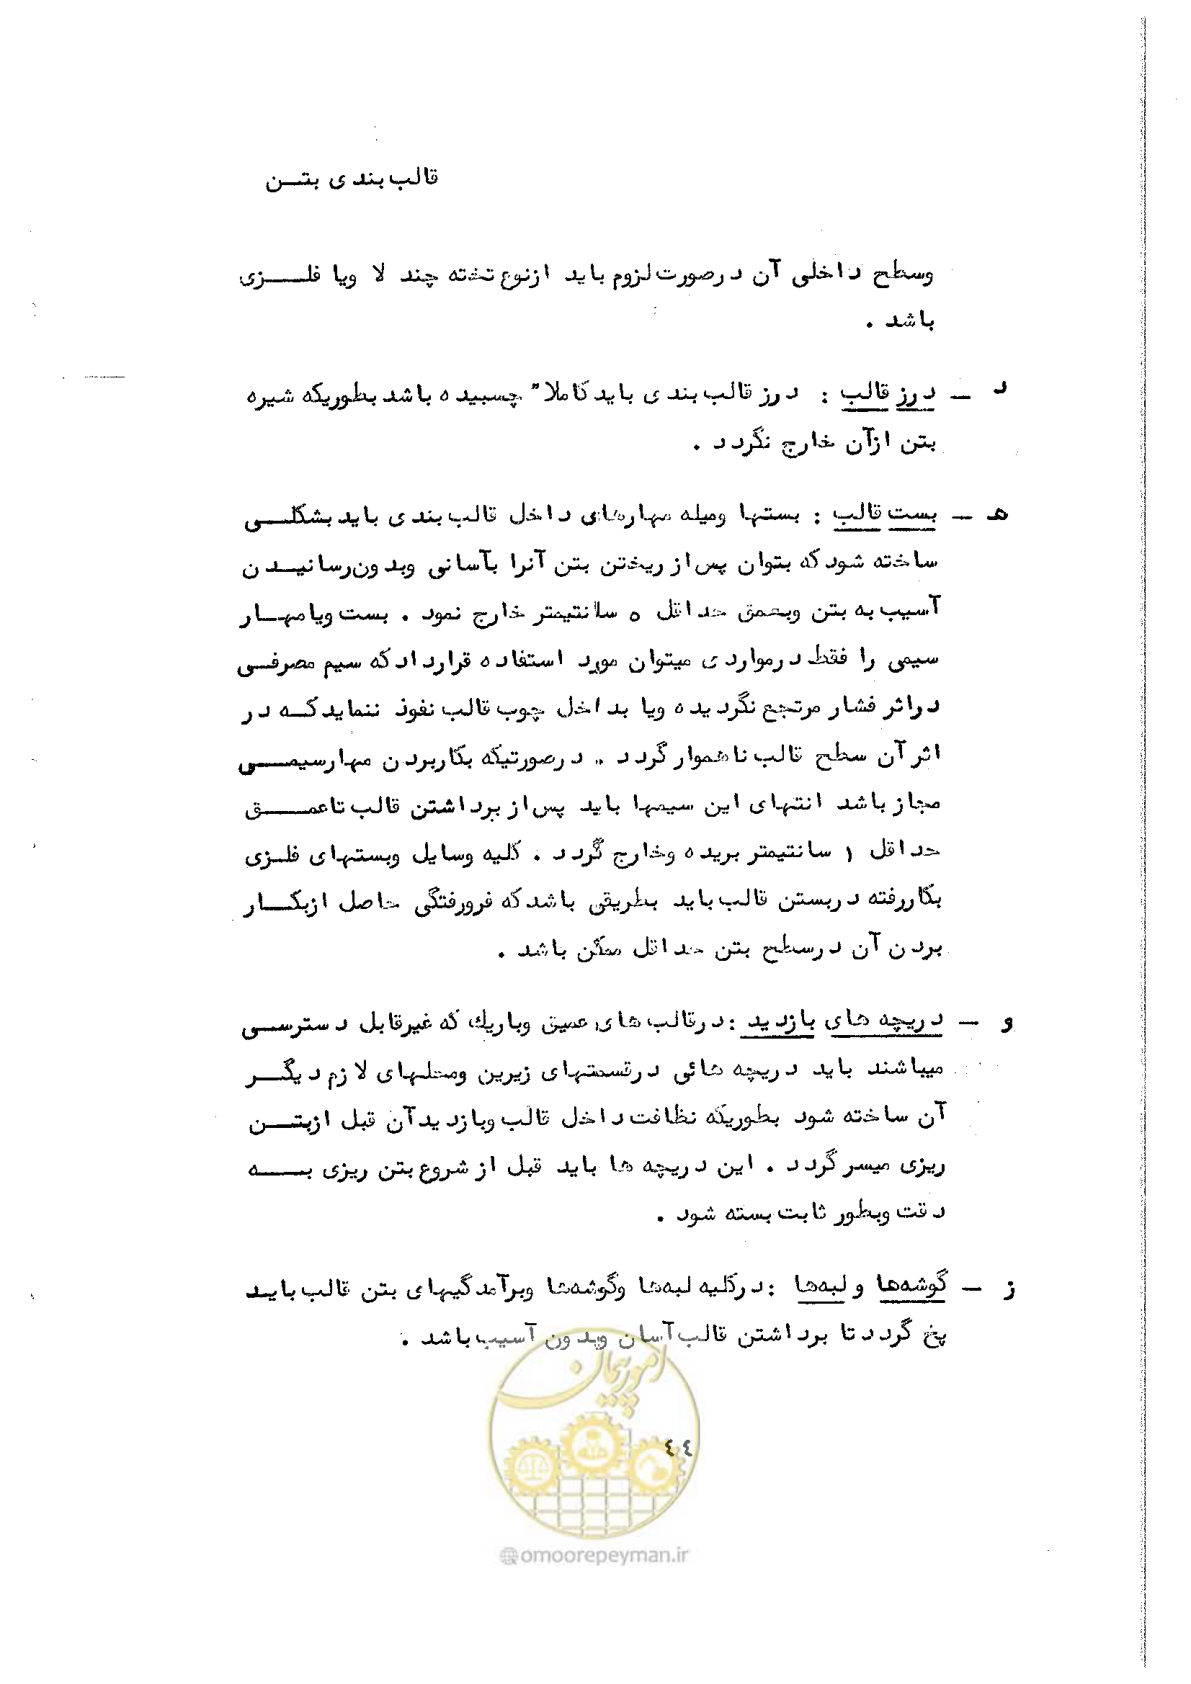 قالب بندی بتـن
وسطح داخلی آن درصورت لزوم باید ازنوع تخته چند لا ویا فلـــزی
باشد .
د ــ درز قالب : درز قالب بندی باید کاملا" چسبیده باشد بطوریکه شیره
بتن ازآن خارج نگردد .
هـ ــ بست قالب : بستها ومیله مهارهای داخل قالب بندی باید بشکلــی
ساخته شود که بتوان پس از ریختن بتن آنرا بآسانی وبدون رسانیـدن
آسیب به بتن وبعمق حداقل ٥ سانتیمتر خارج نمود . بست ویا مهـار
سیمی را فقط درمواردی میتوان مورد استفاده قرار داد که سیم مصرفـی
دراثر فشار مرتجع نگردیده ویا بداخل چوب قالب نفوذ ننماید کـه در
اثر آن سطح قالب ناهموار گردد .. درصورتیکه بکاربردن مهارسیمــی
مجاز باشد انتهای این سیمها باید پس از برداشتن قالب تاعمــق
حداقل ۱ سانتیمتر بریده وخارج گردد . کلیه وسایل وبستهای فلزی
بکاررفته دربستن قالب باید بطریقی باشد که فرورفتگی حاصل ازبکــار
بردن آن درسطح بتن حداقل ممکن باشد .
و ــ دریچه های بازدید : درقالب های عمیق وباریك که غیرقابل دسترســی
میباشند باید دریچه هائی درقسمتهای زیرین ومحلهای لازم دیگــر
آن ساخته شود بطوریکه نظافت داخل قالب وبازدیدآن قبل ازبتــن
ریزی میسر گردد . این دریچه ها باید قبل از شروع بتن ریزی بـــه
دقت وبطور ثابت بسته شود .
ز ــ گوشه‌ها و لبه‌ها : درکلیه لبه‌ها وگوشه‌ها وبرآمدگیهای بتن قالب بایـد
پخ گردد تا برداشتن قالب آسان وبدون آسیب باشد .
امور پیمان
٤٤
@omoorepeyman.ir